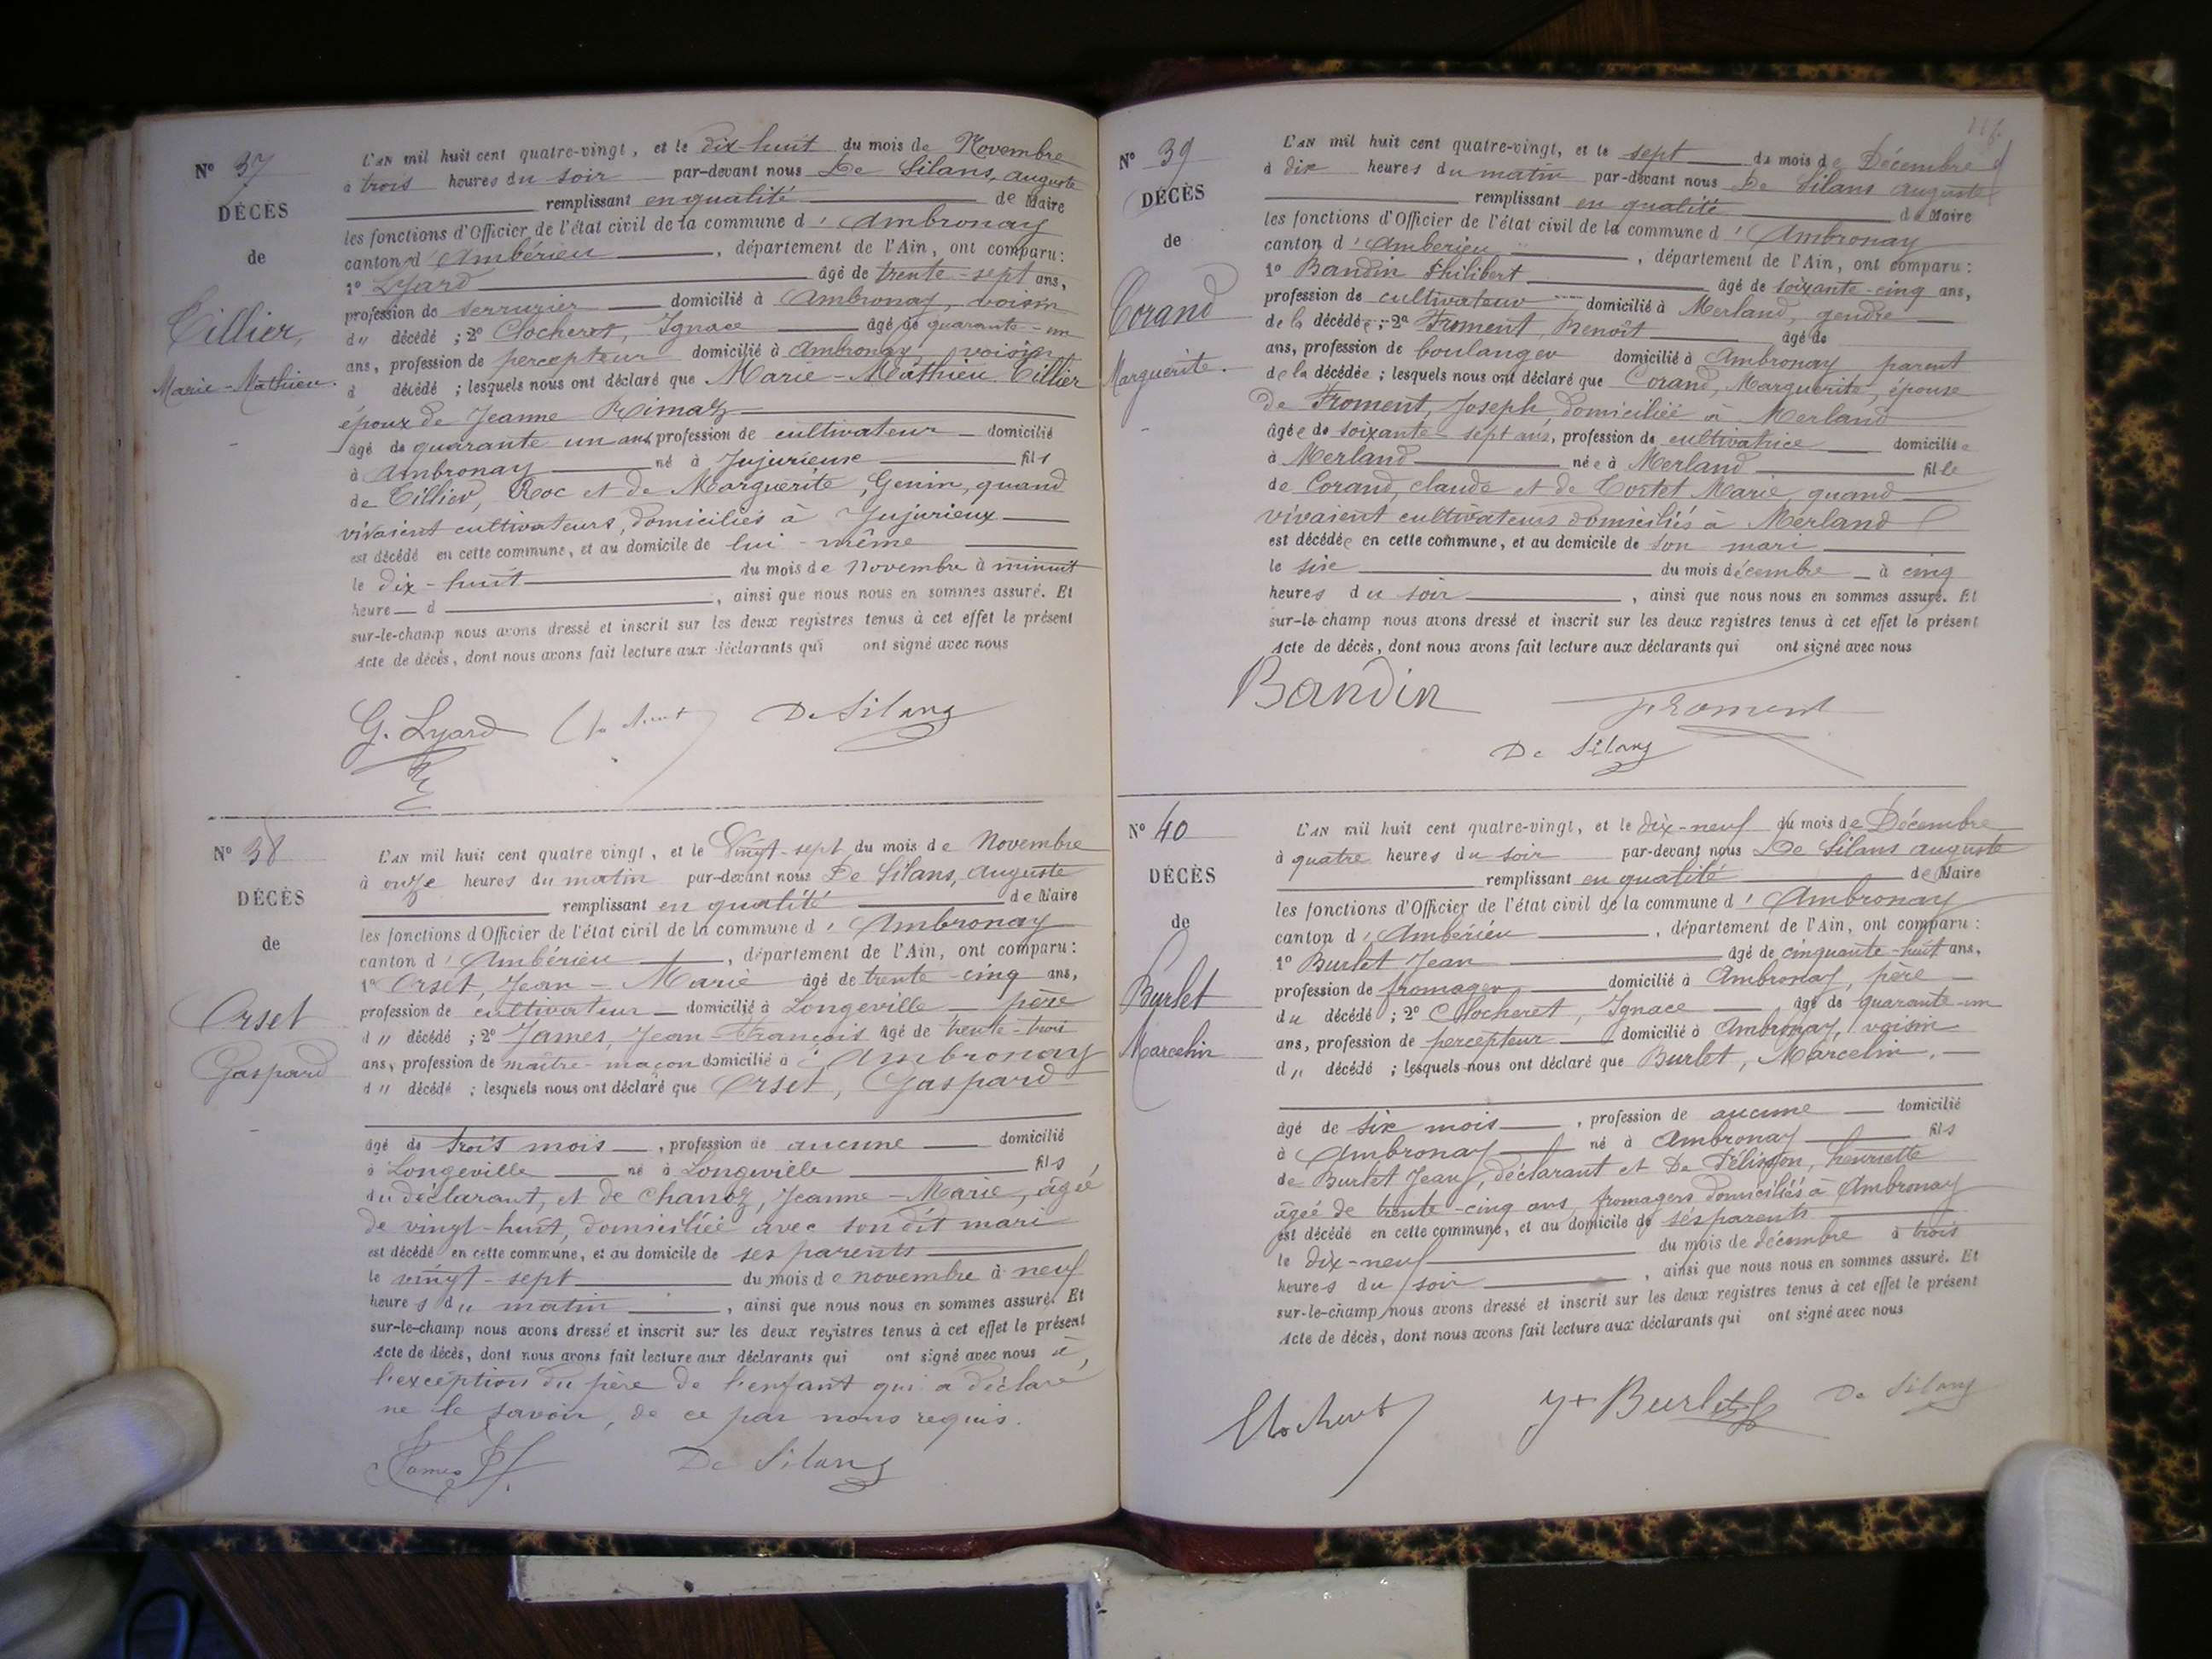 N° 37
DÉCÈS
de
Tillier,
Marie-Mathieu.
L'AN mil huit cent quatre-vingt, et le dix-huit du mois de Novembre
à trois heures du soir par-devant nous De Silans, auguste
remplissant en qualité de Maire
les fonctions d'Officier de l'état civil de la commune d'Ambronay
canton d'Ambérieu, département de l'Ain, ont comparu:
1° Lyard âgé de trente-sept ans,
profession de serrurier domicilié à Ambronay, voisin
du décédé ; 2° Clocheret, Ignace âgé de quarante-un
ans, profession de percepteur domicilié à Ambronay, voisin
d décédé ; lesquels nous ont déclaré que Marie-Mathieu Tillier
époux de Jeanne Rimaz
âgé de quarante un ans, profession de cultivateur domicilié
à Ambronay né à Jujurieux fils
de Tillier, Roc et de Marguerite, Genin, quand
vivaient cultivateurs, domiciliés à Jujurieux
est décédé en cette commune, et au domicile de lui-même
le dix-huit du mois de Novembre à minuit
heure d , ainsi que nous nous en sommes assuré. Et
sur-le-champ nous avons dressé et inscrit sur les deux registres tenus à cet effet le présent
Acte de décès, dont nous avons fait lecture aux déclarants qui ont signé avec nous
G. Lyard De Silans
N° 38
DÉCÈS
de
Orset
Gaspard
L'AN mil huit cent quatre vingt, et le Vingt-sept du mois de Novembre
à onze heures du matin par-devant nous De Silans, Auguste
remplissant en qualité de Maire
les fonctions d'Officier de l'état civil de la commune d'Ambronay
canton d'Ambérieu, département de l'Ain, ont comparu:
1° Orset, Jean-Marie âgé de trente-cinq ans,
profession de cultivateur domicilié à Longeville père
d" décédé ; 2° James, Jean-François âgé de trente-trois
ans, profession de maître-maçon domicilié à Ambronay
d" décédé ; lesquels nous ont déclaré que Orset, Gaspard
âgé de trois mois, profession de aucune domicilié
à Longeville né à Longeville fils
du déclarant, et de Chanoz, Jeanne-Marie, âgée
de vingt-huit, domiciliée avec son dit mari
est décédé en cette commune, et au domicile de ses parents
le vingt-sept du mois de novembre à neuf
heures du matin, ainsi que nous nous en sommes assuré. Et
sur-le-champ nous avons dressé et inscrit sur les deux registres tenus à cet effet le présent
Acte de décès, dont nous avons fait lecture aux déclarants qui ont signé avec nous à
l'exception du père de l'enfant qui a déclaré
ne le savoir, de ce par nous requis.
James De Silans
N° 39
DÉCÈS
de
Corand
Marguerite.
L'AN mil huit cent quatre-vingt, et le sept du mois de Décembre
à dix heures du matin par-devant nous De Silans auguste
remplissant en qualité de Maire
les fonctions d'Officier de l'état civil de la commune d'Ambronay
canton d'Ambérieu, département de l'Ain, ont comparu:
1° Bandin Philibert âgé de soixante-cinq ans,
profession de cultivateur domicilié à Merland, gendre
de la décédée ; 2° Froment, Benoît âgé de
ans, profession de boulanger domicilié à Ambronay parent
de la décédée ; lesquels nous ont déclaré que Corand, Marguerite, épouse
de Froment, Joseph, domiciliée à Merland
âgée de soixante-sept ans, profession de cultivatrice domiciliée
à Merland née à Merland fille
de Corand, claude et de Tortet Marie, quand
vivaient cultivateurs domiciliés à Merland
est décédée en cette commune, et au domicile de son mari
le six du mois décembre à cinq
heures du soir, ainsi que nous nous en sommes assuré. Et
sur-le-champ nous avons dressé et inscrit sur les deux registres tenus à cet effet le présent
Acte de décès, dont nous avons fait lecture aux déclarants qui ont signé avec nous
Bandin Froment
De Silans
N° 40
DÉCÈS
de
Burlet
Marcelin
L'AN mil huit cent quatre-vingt, et le dix-neuf du mois de Décembre
à quatre heures du soir par-devant nous De Silans auguste
remplissant en qualité de Maire
les fonctions d'Officier de l'état civil de la commune d'Ambronay
canton d'Ambérieu, département de l'Ain, ont comparu:
1° Burlet Jean âgé de cinquante-huit ans,
profession de fromager domicilié à Ambronay, père
du décédé ; 2° Clocheret, Ignace âgé de quarante-un
ans, profession de percepteur domicilié à Ambronay, voisin
d" décédé ; lesquels nous ont déclaré que Burlet, Marcelin,
âgé de six mois, profession de aucune domicilié
à Ambronay né à Ambronay fils
de Burlet Jean, déclarant et De Pélisson, henriette
âgée de trente-cinq ans, fromagers domiciliés à Ambronay
est décédé en cette commune, et au domicile de ses parents
le dix-neuf du mois de décembre à trois
heures du soir, ainsi que nous nous en sommes assuré. Et
sur-le-champ nous avons dressé et inscrit sur les deux registres tenus à cet effet le présent
Acte de décès, dont nous avons fait lecture aux déclarants qui ont signé avec nous
Clocheret Burlet De Silans